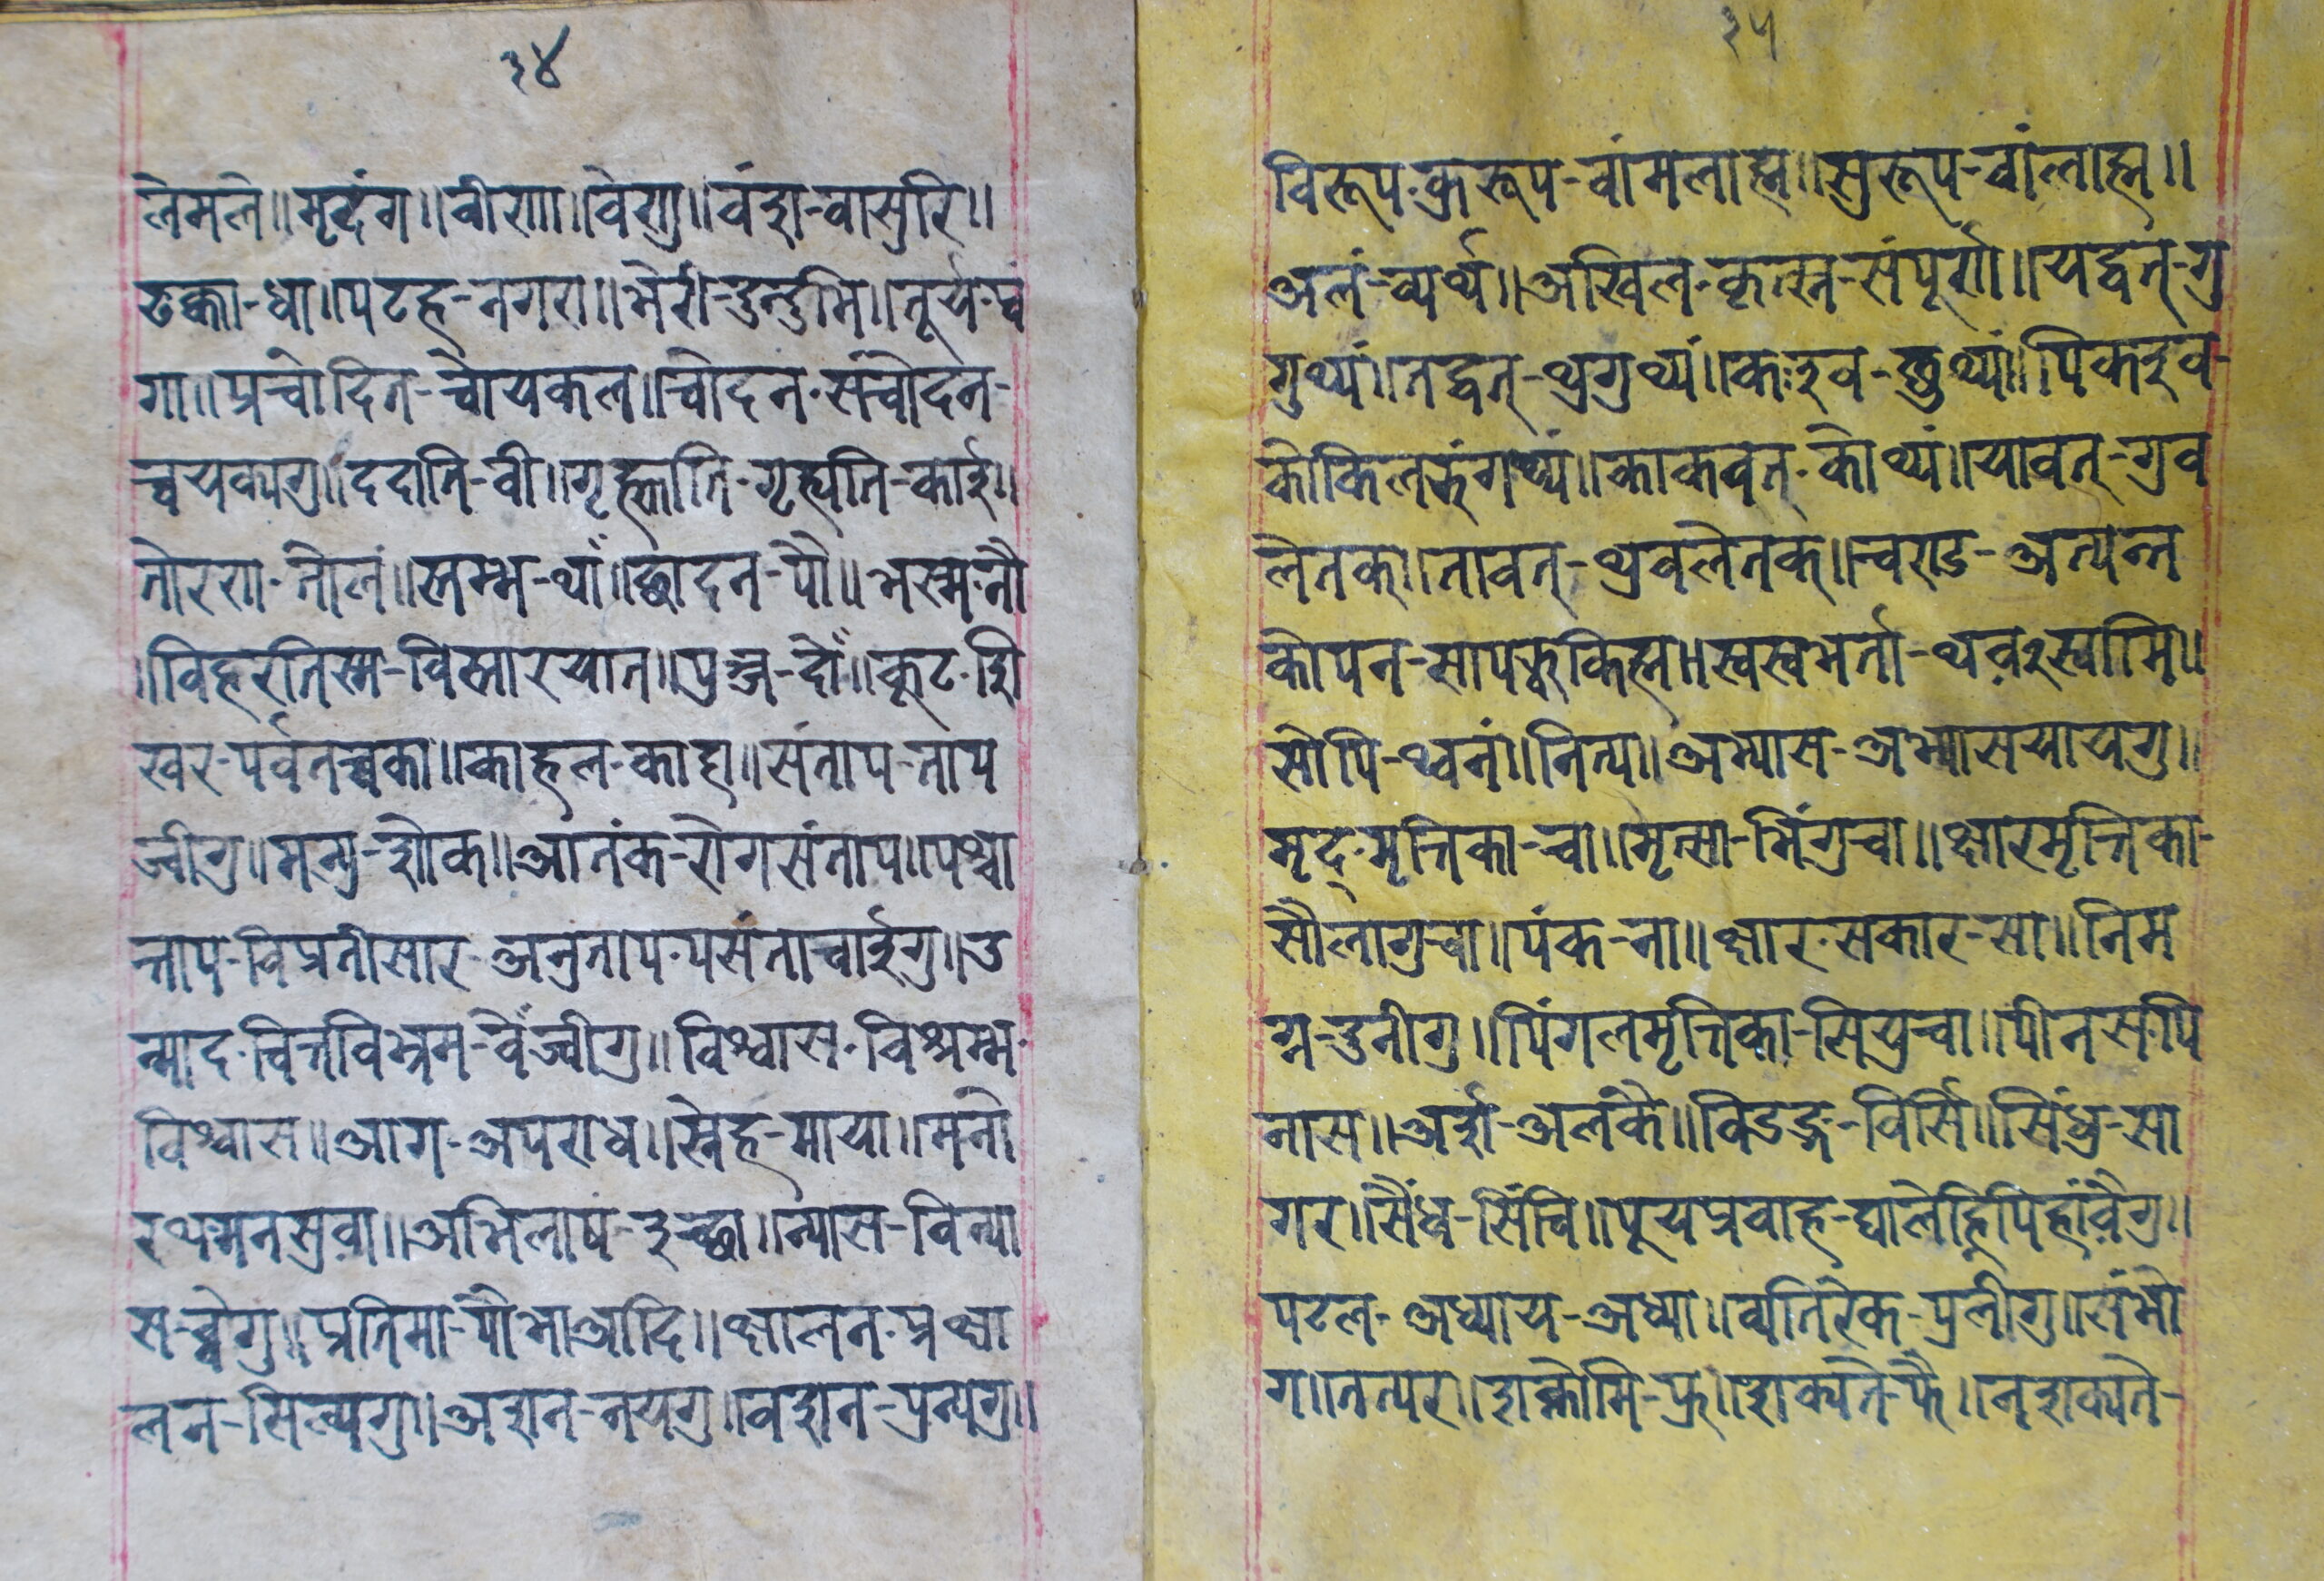 ३४
लेमले॥मृदंग॥वीणा॥वेणु॥वंश-वासुरि॥
ढक्का-धा॥पटह-नगरा॥भेरी-दुन्दुभि॥तूर्य-पं
गा॥प्रचोदित-चोयकल॥चोदन-संचोदन-
च्वयक्यगु॥ददाति-वी॥गृह्णाति-गृह्यति-काई॥
तोरण-तोलं॥स्तम्भ-थां॥छादन-पौ॥भस्म-नौ
॥विहरतिस्म-विस्तारयात॥पुञ्ज-दों॥कूट-शि
खर-पर्वतच्वका॥काहल-काहा॥संताप-ताप
ज्वीगु॥मन्यु-शोक॥आतंक-रोगसंताप॥पश्चा
त्ताप-विप्रतीसार-अनुताप-पसंताचाईगु॥उ
न्माद-चित्तविभ्रम-वेंज्वीगु॥विश्वास-विश्रम्भ-
विश्वास॥आग-अपराध॥स्नेह-माया॥मनो
रथ-मनसुवा॥अभिलाष-इच्छा॥न्यास-विन्या
स-च्वेगु॥प्रतिमा-पौभाआदि॥क्षालन-प्रक्षा
लन-सिल्यगु॥अशन-नयगु॥वशन-पुन्यगु॥
३५
विरूप-कुरूप-बांमलाह्म॥सुरूप-बांलाह्म॥
अलं-व्यर्थ॥अखिल-कृत्स्न-संपूर्ण॥यद्वत्-गु
गुथ्यं॥तद्वत्-थुगुथ्यं॥कइव-छुथ्यं॥पिकइव-
कोकिलझंगथ्यं॥काकवत्-कोथ्यं॥यावत्-गुव
लेतक॥तावत्-थुवलेतक॥चण्ड-अत्यन्त
कोपन-सापझ्वकिह्म॥स्वस्वभर्ता-थवरस्वामि॥
सोपि-थ्वनं॥नित्य॥अभ्यास-अभ्यासयायगु॥
मृद्-मृत्तिका-चा॥मृत्सा-भिंगुचा॥क्षारमृत्तिका-
सौलागुचा॥पंक-ना॥क्षार-सकार-सा॥निम
ग्न-दुनीगु॥पिंगलमृत्तिका-सियुचा॥पीनस-पि
नास॥अर्श-अलकै॥विडङ्ग-विर्सि॥सिंधु-सा
गर॥सैंधव-सिंचि॥पूयप्रवाह-घालेहिपिहांवैगु॥
पटल-अध्याय-अध्या॥व्यतिरेक-पुलीगु॥संभो
ग॥तत्पर॥शक्नोमि-फु॥शक्यते-फै॥नशक्यते-